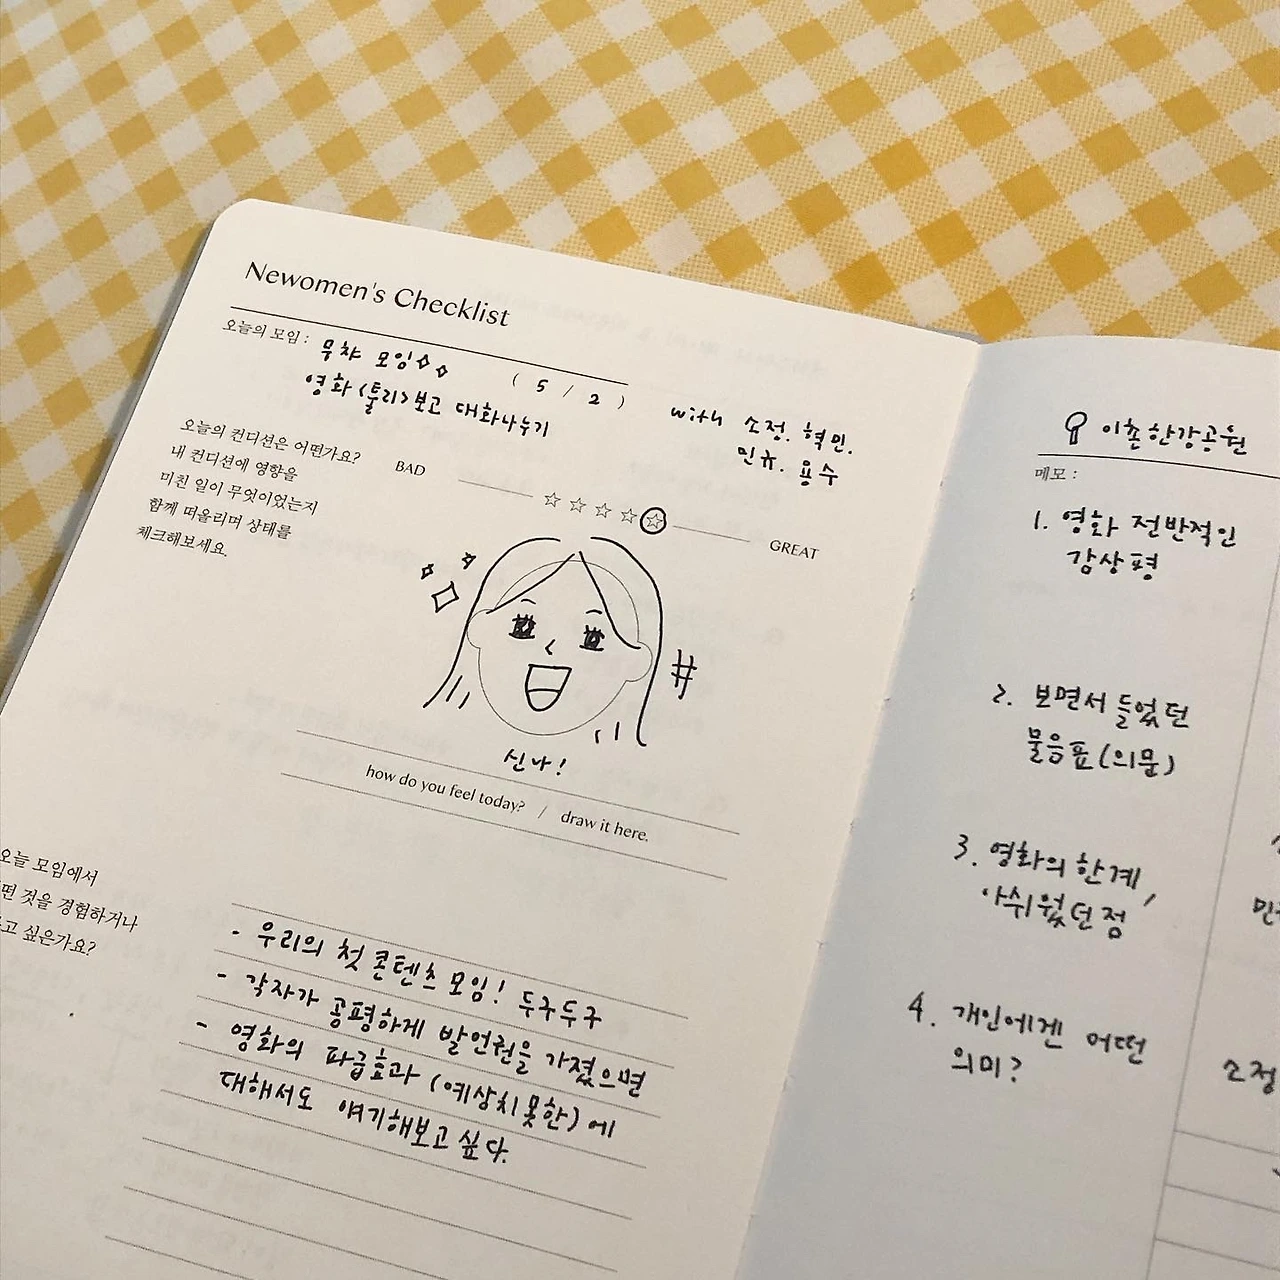 Newomen's Checklist
오늘의 모임 : 무챠 모임
( 5 / 2 )
영화 <툴리> 보고 대화나누기
with 소정. 혁민.
민규. 용수
오늘의 컨디션은 어떤가요?
내 컨디션에 영향을
미친 일이 무엇이었는지
함께 떠올리며 상태를
체크해보세요.
BAD ☆ ☆ ☆ ☆ ☆ GREAT
#
신나!
how do you feel today? / draw it here.
오늘 모임에서
떤 것을 경험하거나
고 싶은가요?
- 우리의 첫 콘텐츠 모임! 두구두구
- 각자가 공평하게 발언권을 가졌으면
- 영화의 파급효과 (예상치못한)에
대해서도 얘기해보고 싶다.
이촌한강공원
메모 :
1. 영화 전반적인
감상평
2. 보면서 들었던
물음표(의문)
3. 영화의 한계,
아쉬웠던 점
4. 개인에겐 어떤
의미?
소정